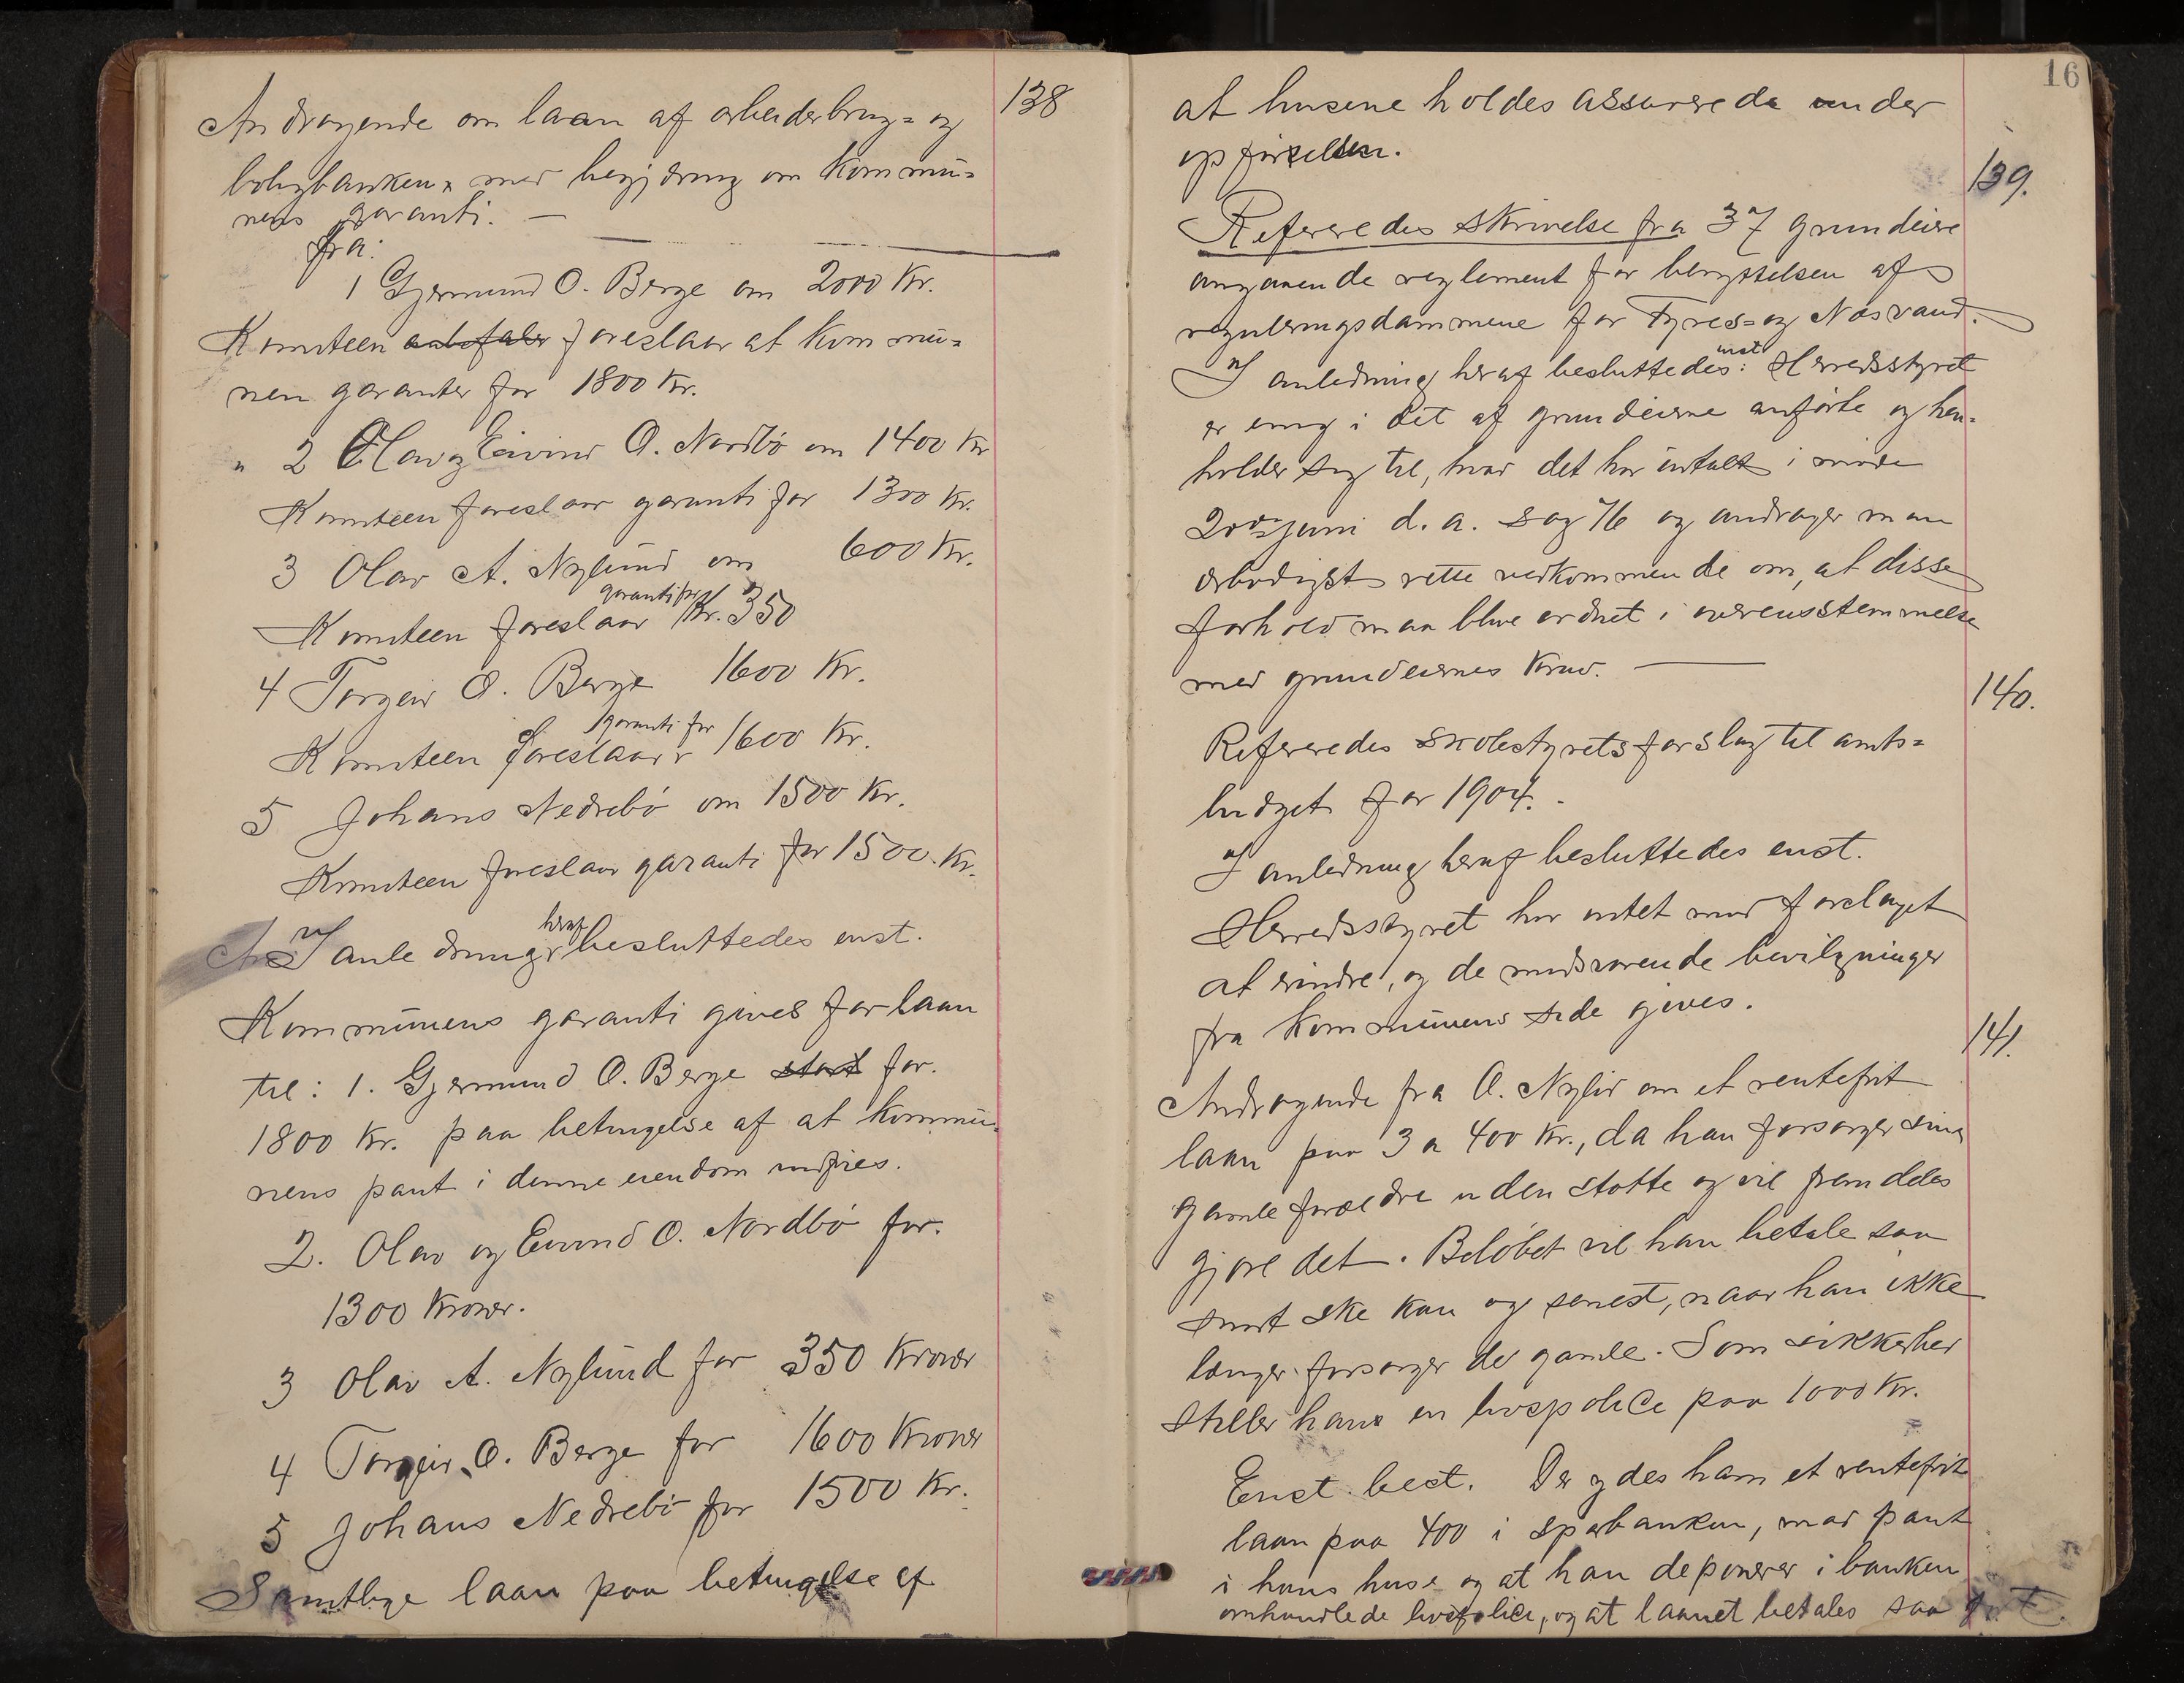 138
Andragende om laan af arbeiderbrug= og
boligbanken, med begjæring om kommu=
nens garanti. —
fra:
1 Gjermund O. Berge om 2000 Kr.
Komiteen anbefaler foreslaar at kommu=
nen garanter for 1800 Kr.
" 2 Olav og Eivind O. Nordbö om 1400 Kr
Komiteen foreslaar garanti for 1300 Kr.
3 Olav A. Nylund om 600 Kr.
Komiteen foreslaar garanti for Kr. 350
4 Torgeir O. Berge 1600 Kr.
Komiteen foreslaar garanti for 1600 Kr.
5 Johans Nedrebö om 1500 Kr.
Komiteen foreslaar garanti for 1500 Kr.
I anledning heraf besluttedes enst.
Kommunens garanti gives for laan
til: 1. Gjermund O. Berge stort for.
1800 Kr. paa betingelse af at kommu=
nens pant i denne eiendom indfries.
2. Olav og Eivind O. Nordbö for.
1300 Kroner.
3 Olav A. Nylund for 350 Kroner
4 Torgeir O. Berge for 1600 Kroner
5 Johans Nedrebö for 1500 Kr.
Samtlige laan paa betingelse af
16
at husene holdes assurerede under
opförselen.
139.
Refereredes skrivelse fra 37 grundeiere
angaaende reglement for benyttelsen af
reguleringsdammene for Fyres= og Nisvand.
I anledning heraf besluttedes enst: Herredsstyret
er enig i det af grundeierne anförte og hen=
holder sig til, hvad det har indtalt i möde
20de juni d. a. sag 76 og andrager man
ærbödigst rette vedkommende om, at disse
forhold maa blive ordnet i overensstemmelse
med grundeiernes krav. —
140.
Refereredes skolestyrets forslag til amts=
budget for 1904. -
I anledning heraf besluttedes enst.
Herredsstyret har intet mod forslaget
at erindre, og de modsvarende bevilgninger
fra kommunens side gives.
141.
Andragende fra O. Nylid om et rentefrit
laan paa 3 a 400 Kr., da han forsörger sine
gamle forældre uden stötte og vil fremdeles
gjöre det. Belöbet vil han betale saa
snart ske kan og senest, naar han ikke
længer forsörger de gamle. Som sikkerhed
stiller hans en livspolice paa 1000 Kr.
Enst. best. Der ydes ham et rentefrit
laan paa 400 i sparbanken, mod pant
i hans huse og at han deponerer i banken
omhandlede livspolice, og at laanet betales saa